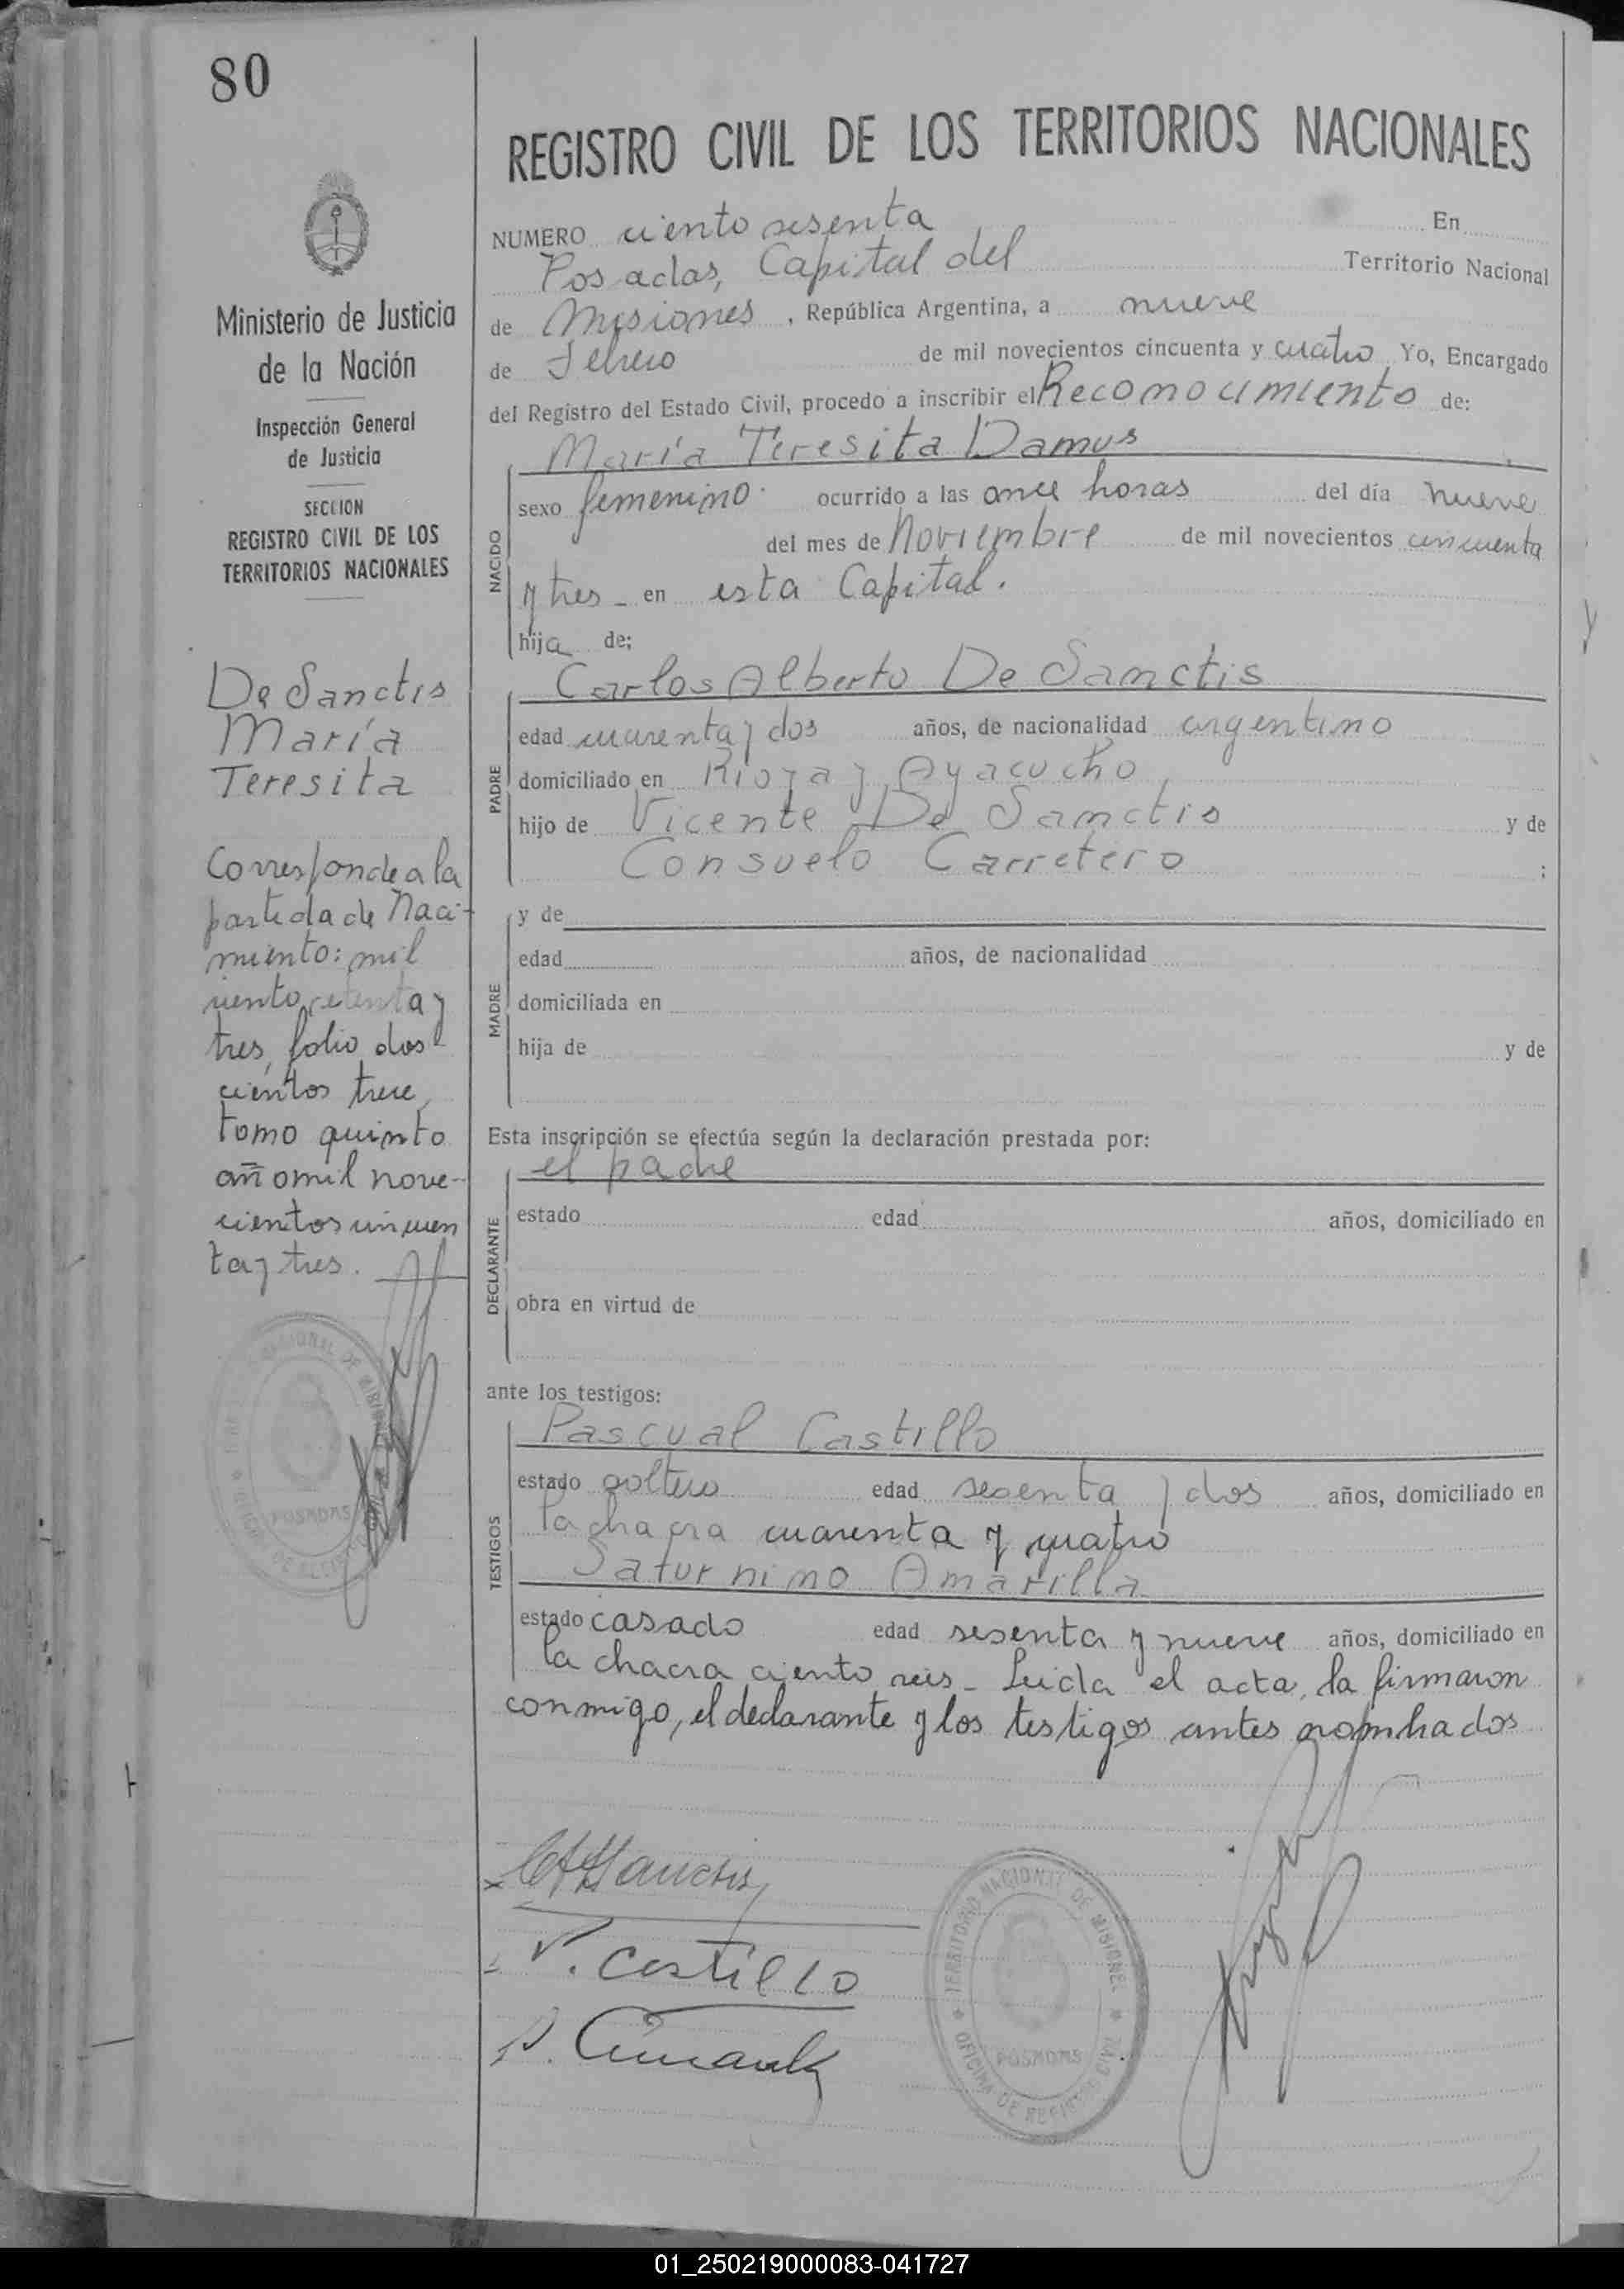 80
REGISTRO CIVIL DE LOS TERRITORIOS NACIONALES
Ministerio de Justicia
de la Nación
Inspección General
de Justicia
SECCION
REGISTRO CIVIL DE LOS
TERRITORIOS NACIONALES
De Sanctis
María
Teresita
Corresponde a la
partida de Naci-
miento: mil
ciento setenta y
tres, folio dos-
cientos trece,
tomo quinto
año mil nove-
cientos cincuen
ta y tres.
NUMERO ciento sesenta En
Posadas, Capital del Territorio Nacional
de Misiones, República Argentina, a nueve
de Febrero de mil novecientos cincuenta y cuatro Yo, Encargado
del Registro del Estado Civil, procedo a inscribir el Reconocimiento de:
María Teresita Damus
NACIDO
sexo femenino. ocurrido a las once horas del día nueve
del mes de Noviembre de mil novecientos cincuenta
y tres - en esta Capital.
hija de;
PADRE
Carlos Alberto De Sanctis
edad cuarenta y dos años, de nacionalidad argentino
domiciliado en Rioja y Ayacucho
hijo de Vicente De Sanctis y de
Consuelo Carretero ;
MADRE
y de
edad años, de nacionalidad
domiciliada en
hija de y de
Esta inscripción se efectúa según la declaración prestada por:
DECLARANTE
el padre
estado edad años, domiciliado en
obra en virtud de
ante los testigos:
TESTIGOS
Pascual Castillo
estado soltero edad sesenta y dos años, domiciliado en
la chacra cuarenta y cuatro
Saturnino Amarilla
estado casado edad sesenta y nueve años, domiciliado en
la chacra ciento seis - Leida el acta, la firmaron
conmigo, el declarante y los testigos antes nombrados
P. Castillo
TERRITORIO NACIONAL DE MISIONES
OFICINA DE REGISTRO CIVIL
POSADAS
01_250219000083-041727